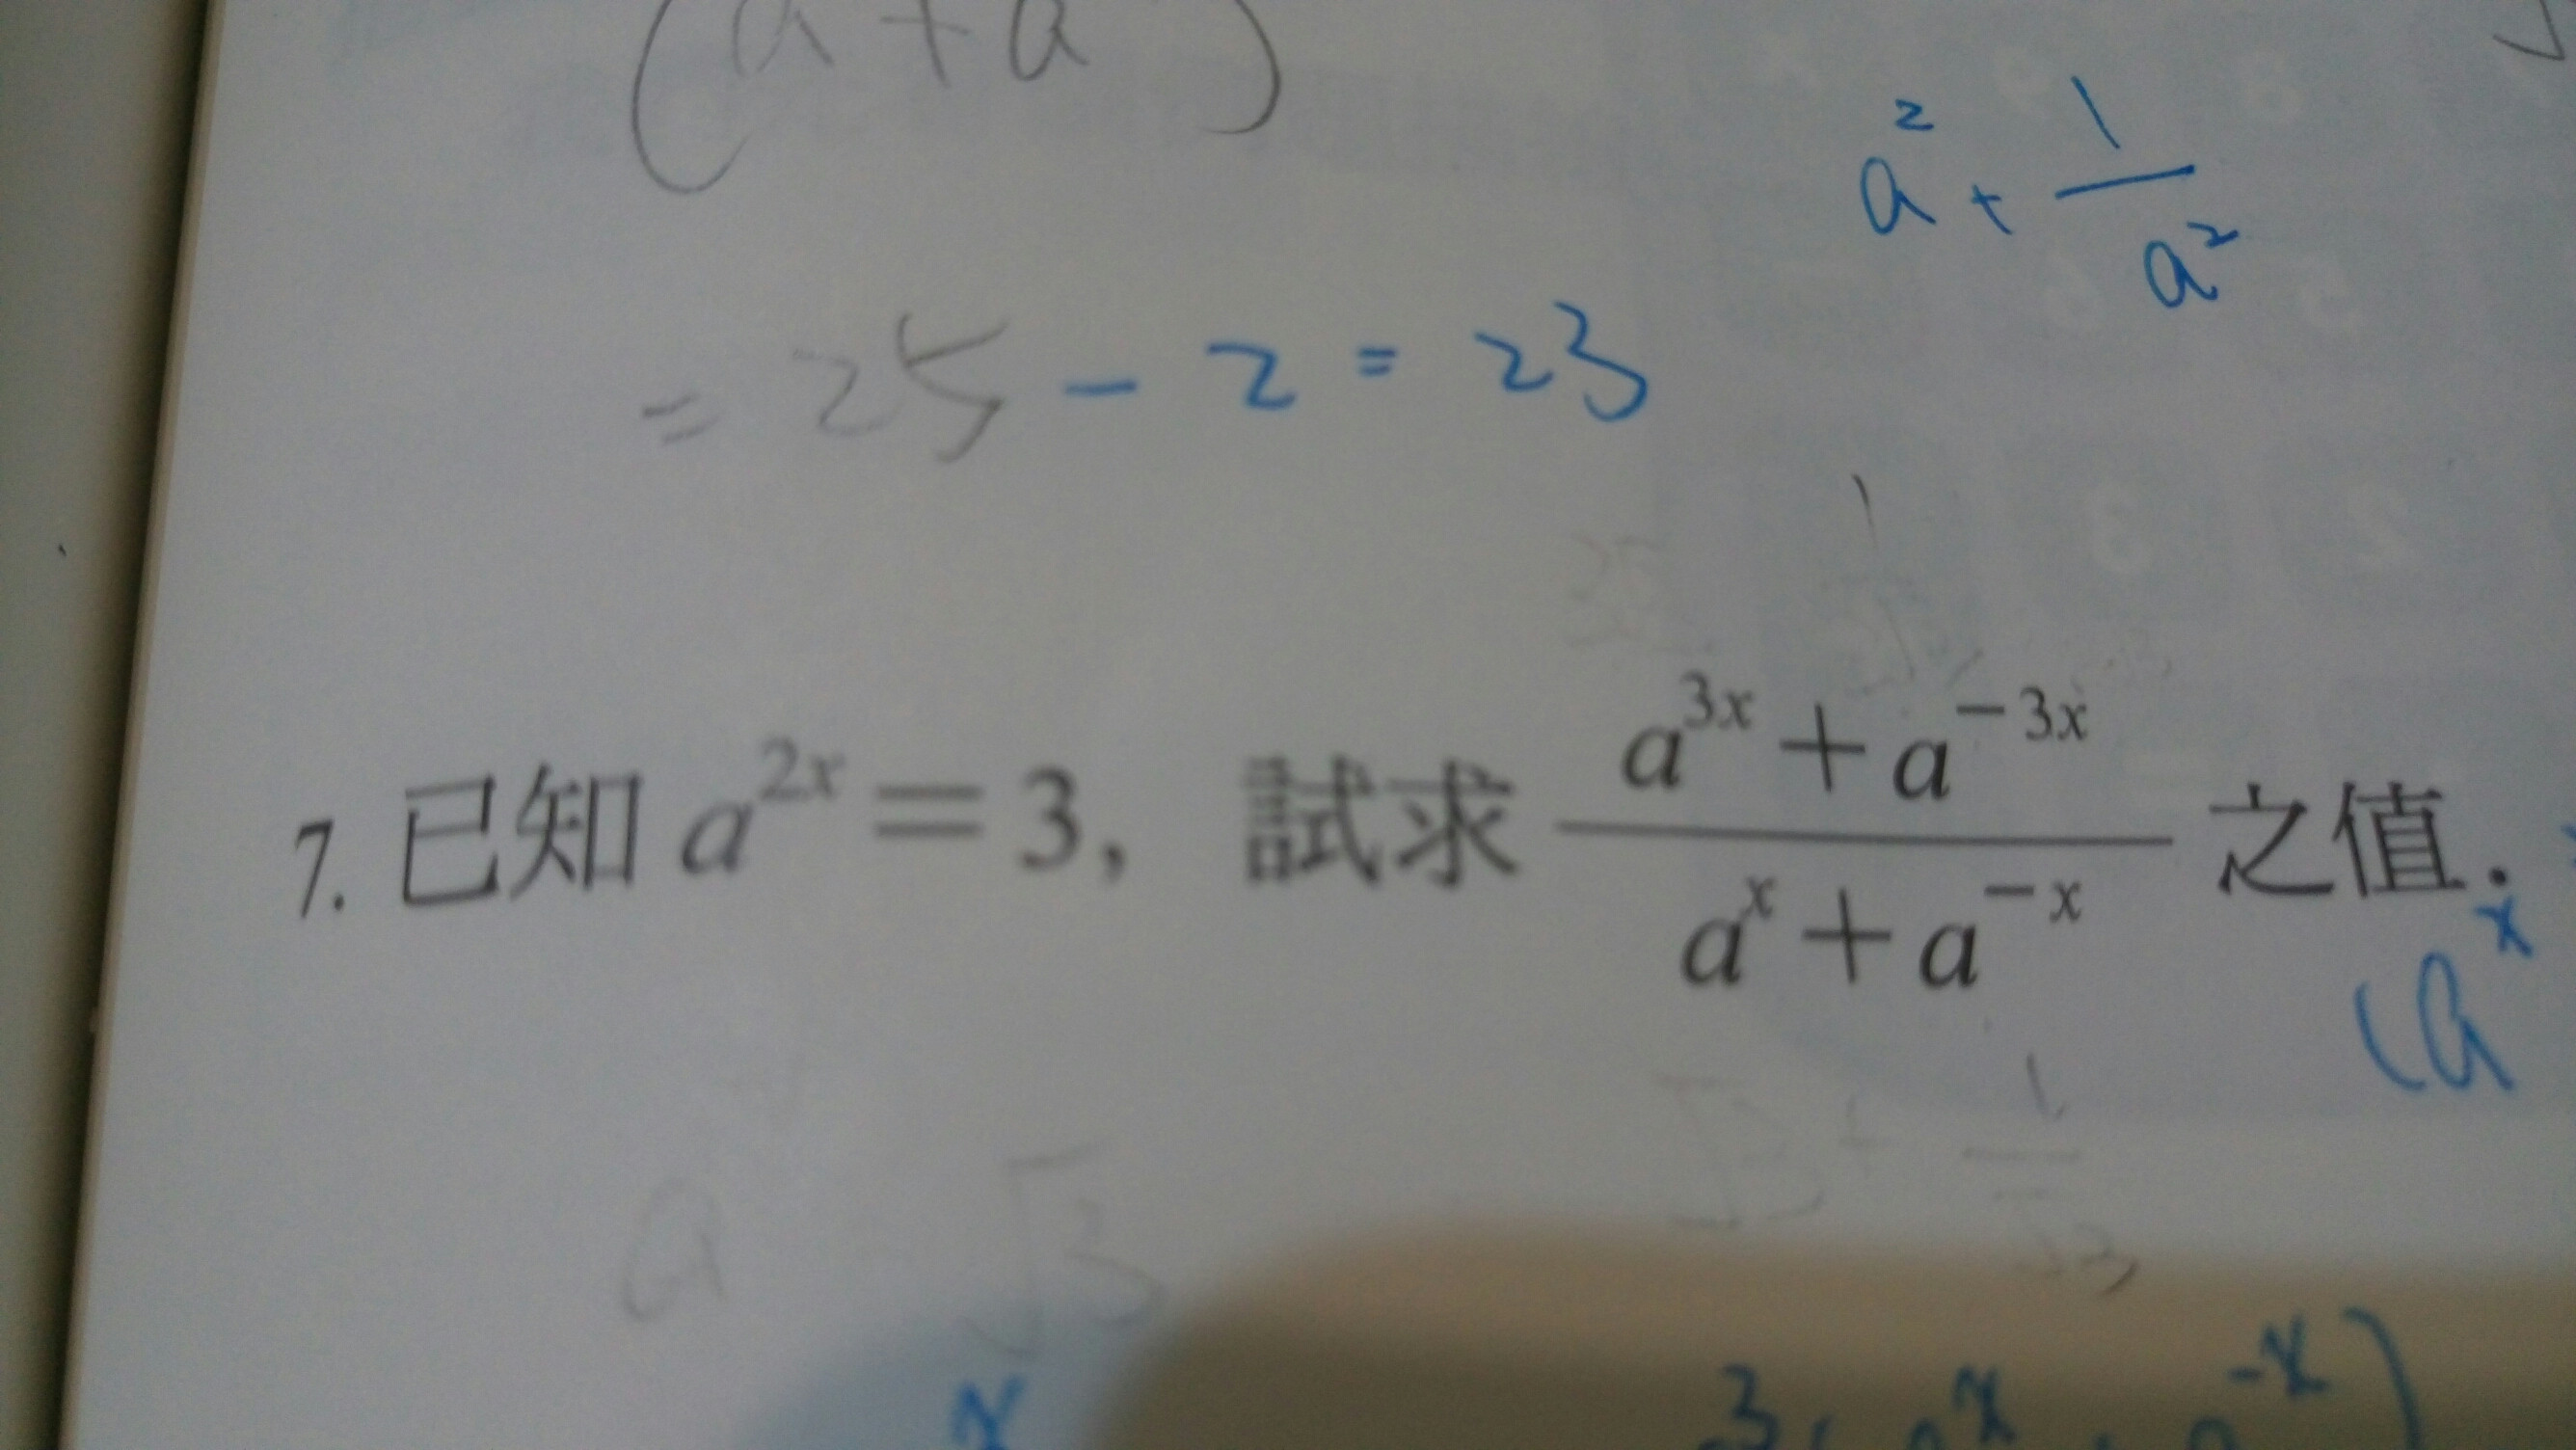 (a + a )
a² + 1/a²
= 25 - 2 = 23
7. 已知 a^{2x} = 3, 試求 \frac{a^{3x} + a^{-3x}}{a^x + a^{-x}} 之值.
(a^x
a √3
x
3(a^x + a^{-x})